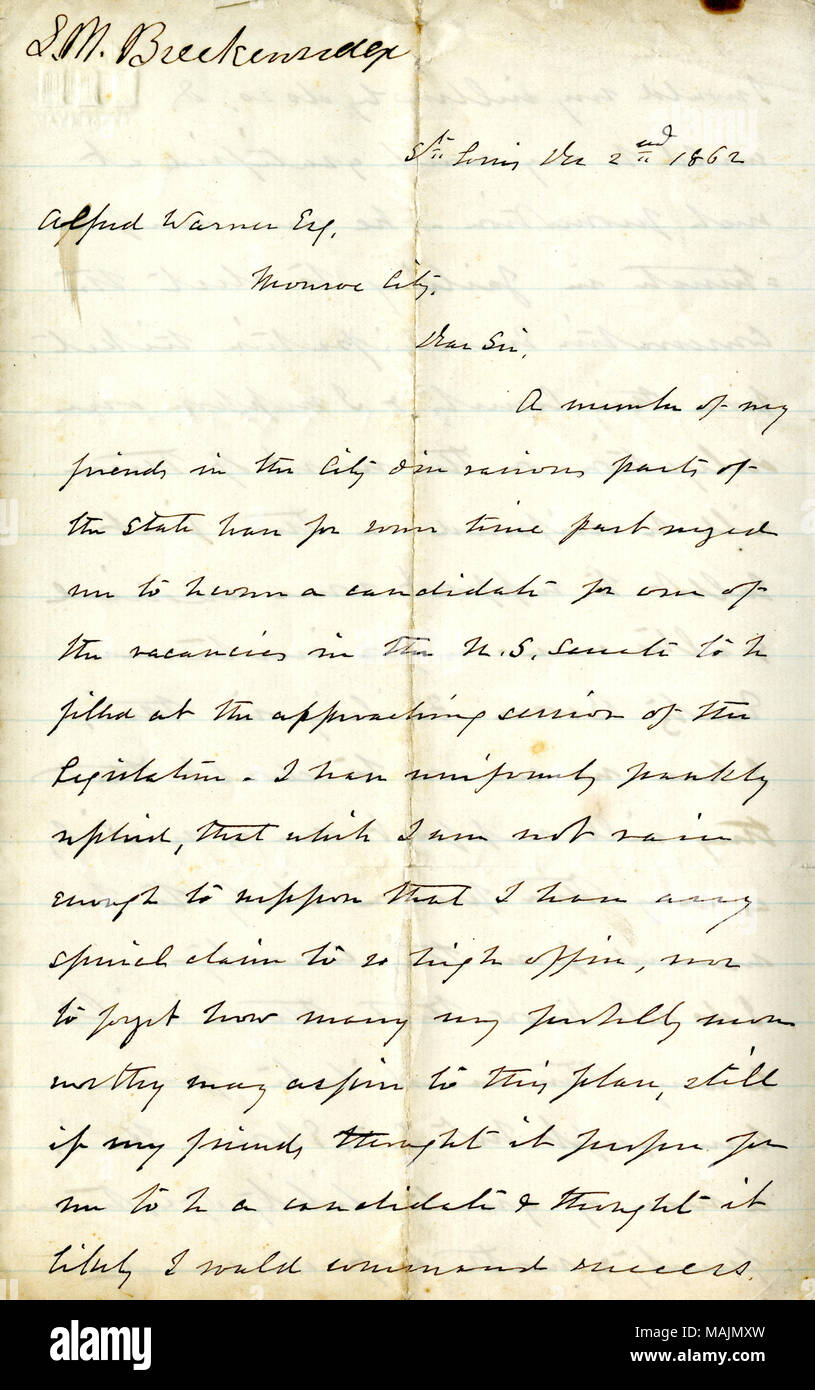 S. M. Breckenridge
St. Louis Dec 2nd 1862
Alfred Warner Esq.
Monroe City.
Dear Sir,
A number of my
friends in the City & in various parts of
the State have for some time past urged
me to become a candidate for one of
the vacancies in the U.S. Senate to be
filled at the approaching session of the
Legislature - I have uniformly frankly
replied, that while I am not vain
enough to suppose that I have any
special claim to so high office, nor
to forget how many my more
worthy may aspire to this place, still
if my friends thought it proper for
me to be a candidate & thought it
likely I would command success.
alamy
Image ID: MAJMXW
www.alamy.com